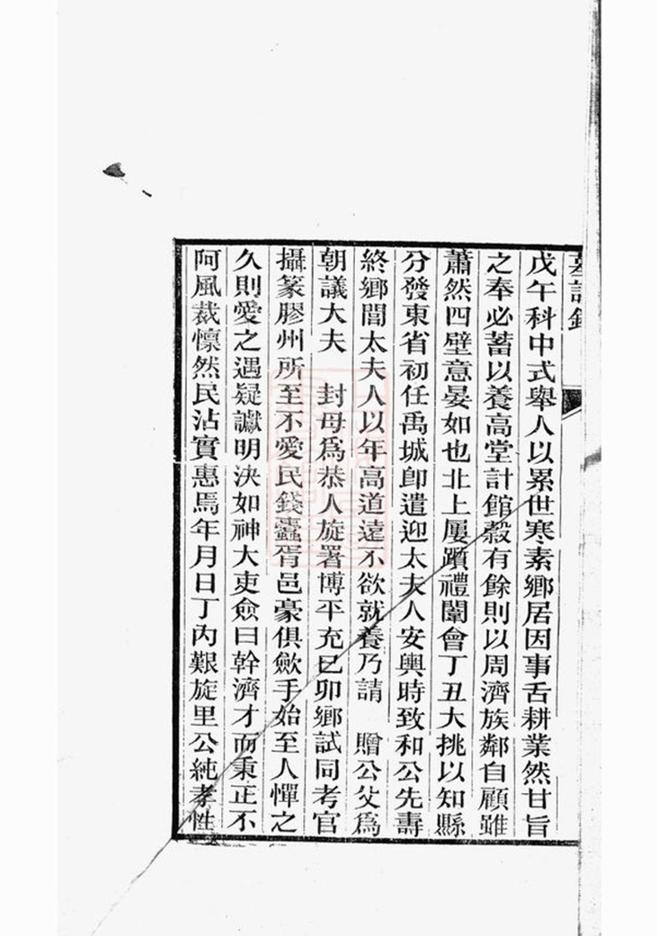 墓誌銘
戊午科中式舉人以累世寒素鄉居因事舌耕業然甘旨
之奉必蓄以養高堂計館穀有餘則以周濟族鄰自顧雖
蕭然四壁意晏如也北上屢躓禮闈會丁丑大挑以知縣
分發東省初任禹城卽遣迎太夫人安輿時致和公先壽
終鄉閭太夫人以年高道遠不欲就養乃請　贈公父爲
朝議大夫　封母爲恭人旋署博平充己卯鄉試同考官
攝篆膠州所至不愛民錢蠹胥邑豪俱歛手始至人憚之
久則愛之遇疑讞明決如神大吏僉曰幹濟才而秉正不
阿風裁懍然民沾實惠焉年月日丁內艱旋里公純孝性